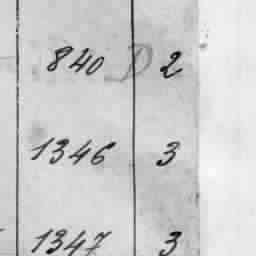 840 D 2
1346 3
1347 3